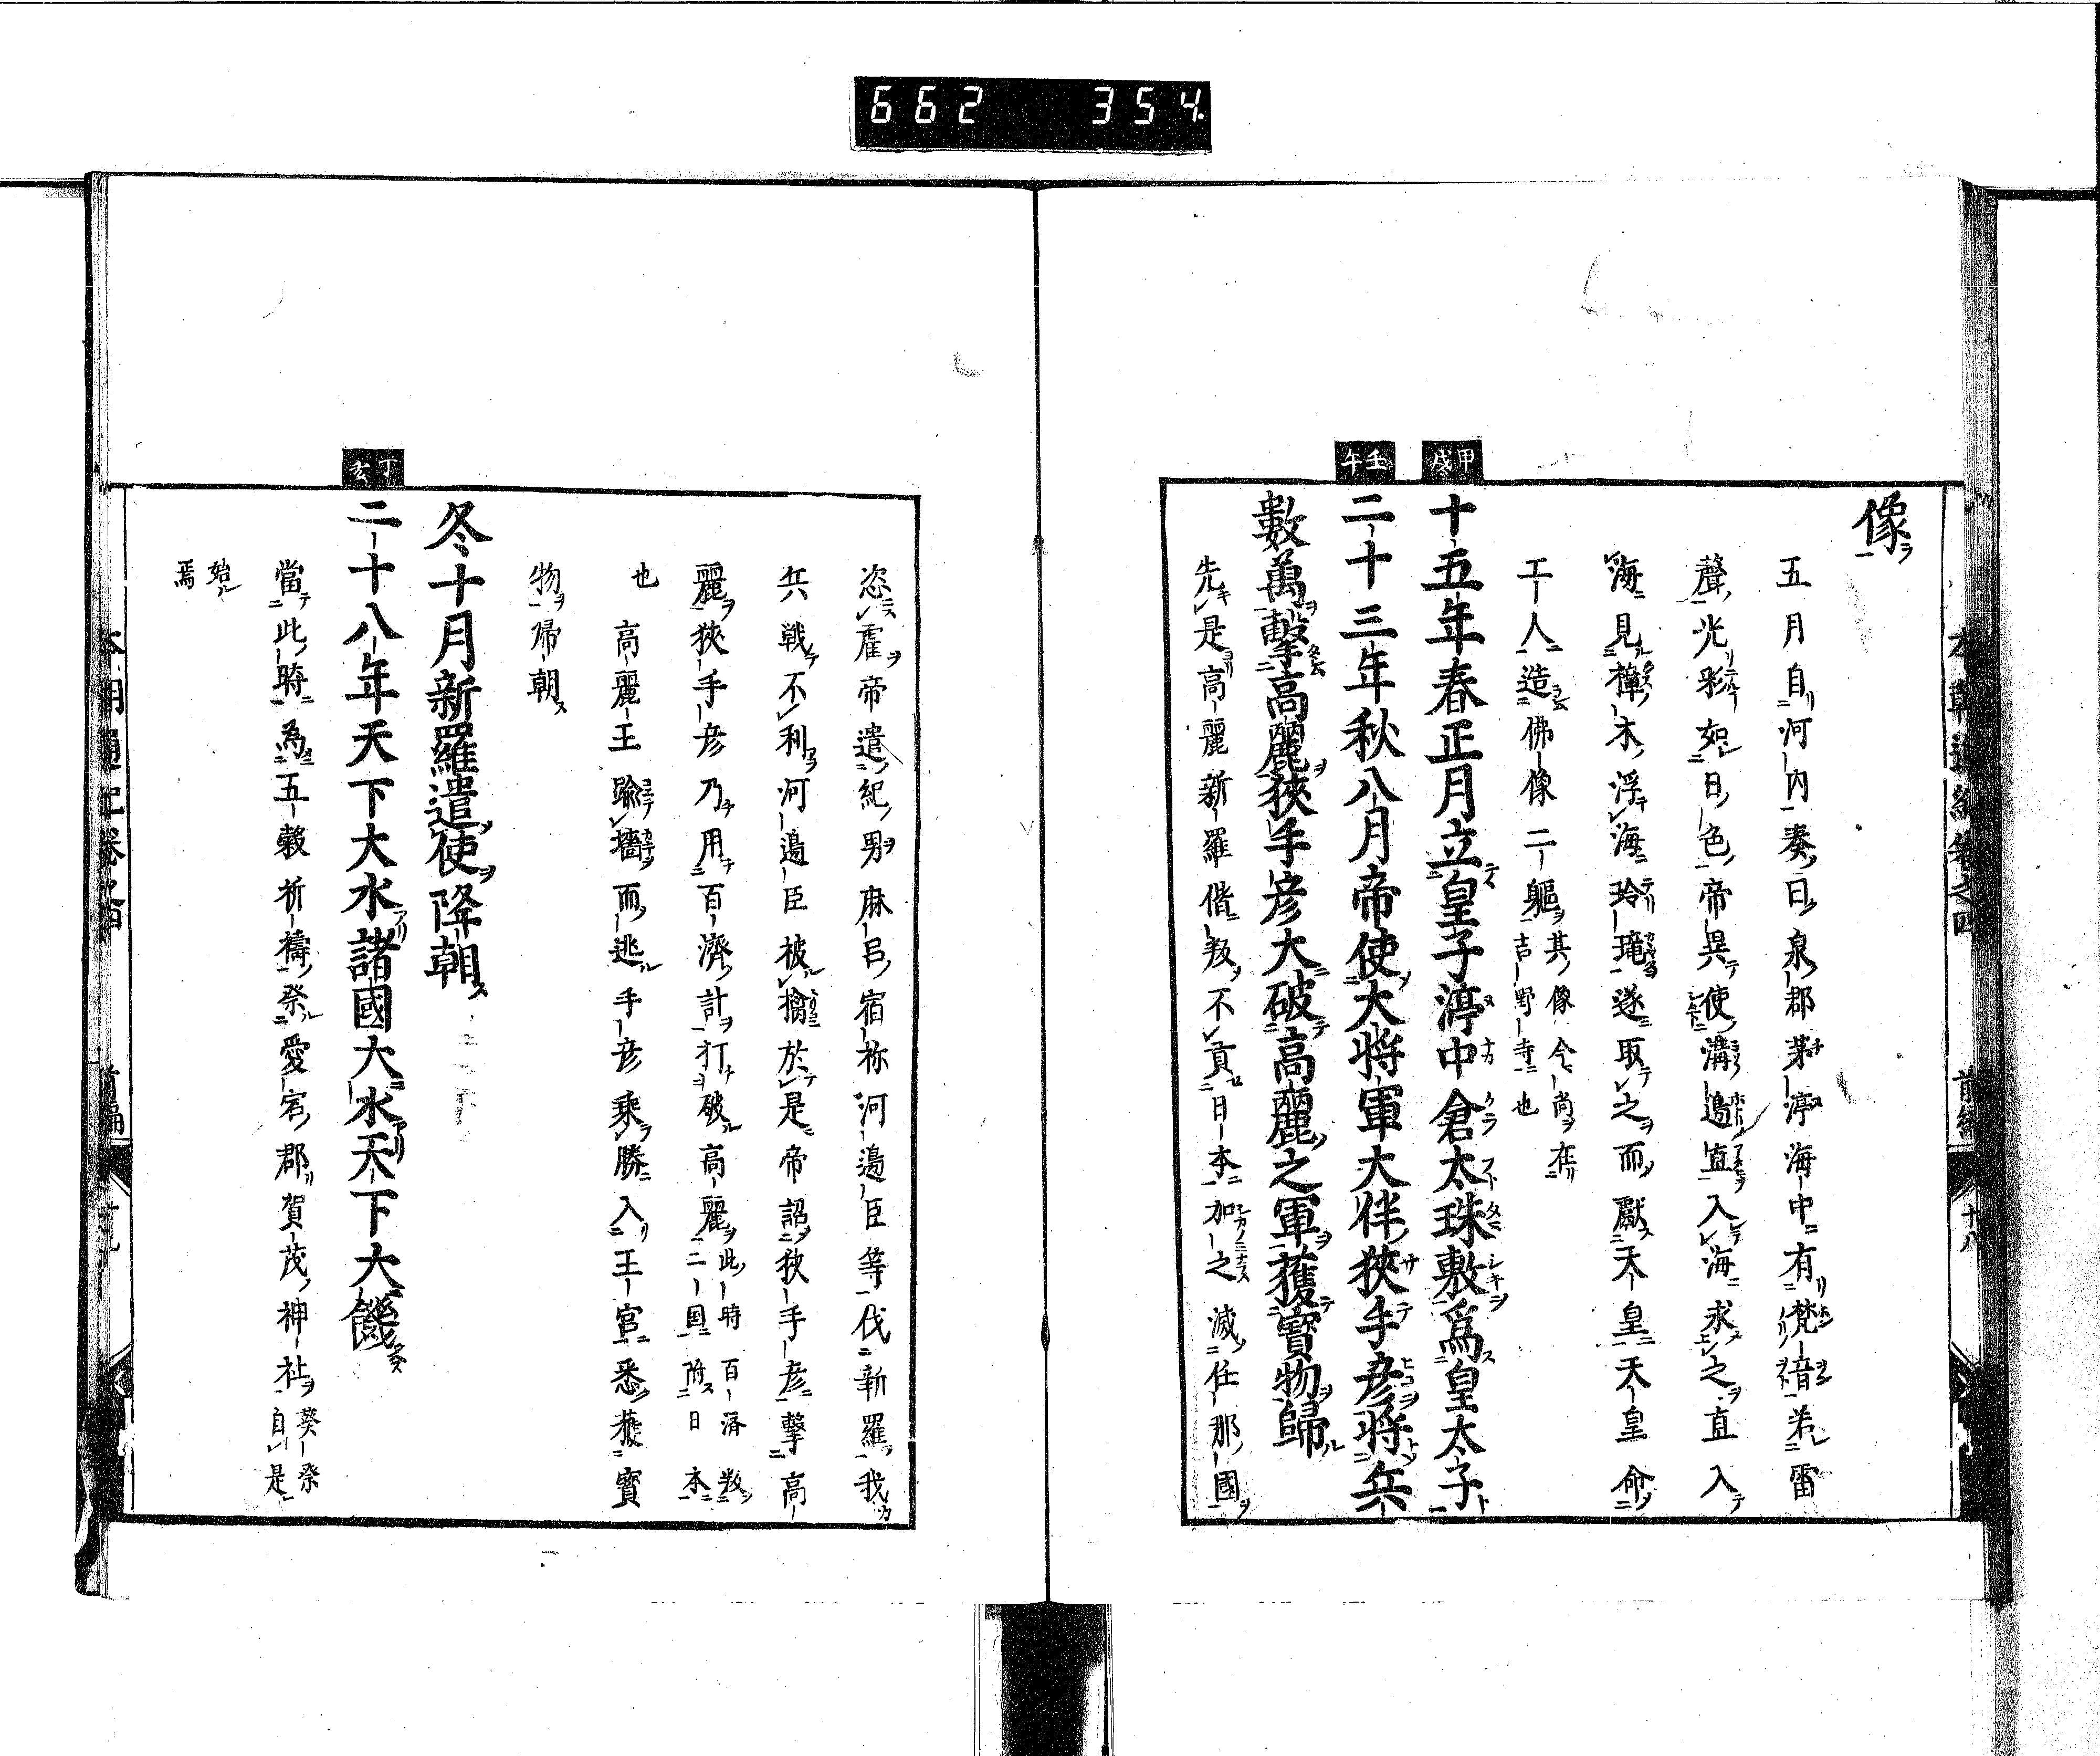 662 354.
像
五月自河内奏曰泉郡茅渟海中有梵音若雷
聲光彩如日色帝異使溝邉直入海求之直入
海見樟木浮海玲瓏遂取之而獻天皇天皇命
工人造佛像二軀其像今尚在
吉野寺也
甲戌
十五年春正月立皇子渟中倉太珠敷爲皇太子
壬午
二十三年秋八月帝使大將軍大伴狹手彦將兵
數萬擊高麗狹手彦大破高麗之軍獲寶物歸
先是高麗新羅偕叛不貢日本加之滅任那國
本朝通紀卷之四 前編 十八
恣虐帝遣紀男麻呂宿祢河邉臣等伐新羅我
兵戦不利河邉臣被擒於是帝詔狹手彦擊高
麗狹手彦乃用百濟計打破高麗此時百済叛
二国附日本
也高麗王踰墻而逃手彦乘勝入王宮悉獲寶
物帰朝
冬十月新羅遣使降朝
丁亥
二十八年天下大水諸國大水天下大饑
當此時為五穀祈禱祭愛宕郡賀茂神社葵祭
自是
始
焉